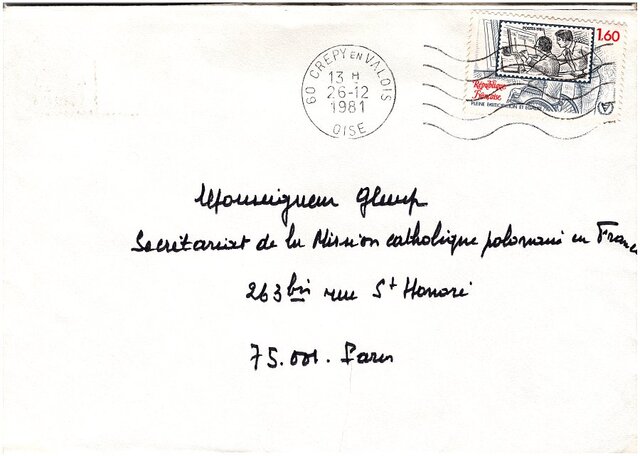 60 CREPY EN VALOIS
13 H
26-12
1981
OISE
1.60
République
Française
PLEINE PARTICIPATION ET
Monseigneur Glemp
Secrétariat de la Mission catholique polonaise en France
263 bis rue St Honoré
75.001. Paris